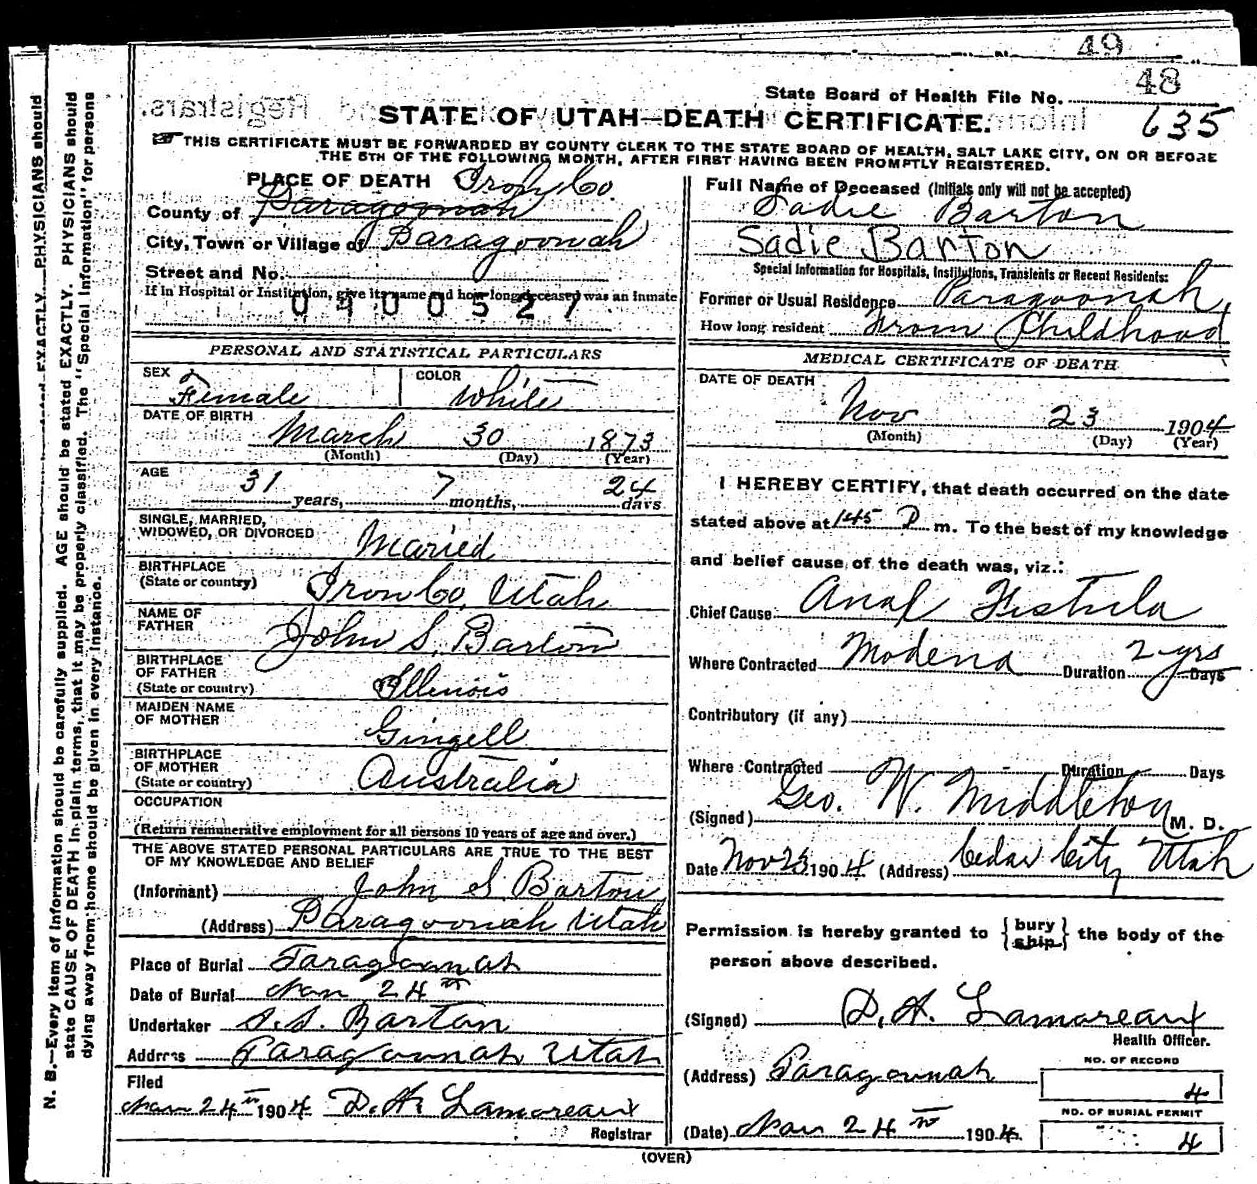 49
State Board of Health File No. 48
STATE OF UTAH—DEATH CERTIFICATE. 635
THIS CERTIFICATE MUST BE FORWARDED BY COUNTY CLERK TO THE STATE BOARD OF HEALTH, SALT LAKE CITY, ON OR BEFORE
THE 5TH OF THE FOLLOWING MONTH, AFTER FIRST HAVING BEEN PROMPTLY REGISTERED.
PLACE OF DEATH Iron Co
County of Paragoonah
City, Town or Village of Paragoonah
Street and No.
If in Hospital or Institution, give its name and how long deceased was an inmate
0400527
Full Name of Deceased (Initials only will not be accepted)
Sadie Barton
Sadie Barton
Special Information for Hospitals, Institutions, Transients or Recent Residents:
Former or Usual Residence Paragoonah,
How long resident From Childhood
PERSONAL AND STATISTICAL PARTICULARS
SEX Female COLOR White
DATE OF BIRTH March 30 1873
(Month) (Day) (Year)
AGE 31 years, 7 months, 24 days
SINGLE, MARRIED,
WIDOWED, OR DIVORCED Maried
BIRTHPLACE
(State or country) Iron Co, Utah
NAME OF
FATHER John S. Barton
BIRTHPLACE
OF FATHER
(State or country) Illinois
MAIDEN NAME
OF MOTHER Gingell
BIRTHPLACE
OF MOTHER
(State or country) Australia
OCCUPATION
(Return remunerative employment for all persons 10 years of age and over.)
THE ABOVE STATED PERSONAL PARTICULARS ARE TRUE TO THE BEST
OF MY KNOWLEDGE AND BELIEF
(Informant) John S. Barton
(Address) Paragoonah Utah
Place of Burial Paragoonah
Date of Burial Nov 24th
Undertaker Barton
Address Paragoonah Utah
Filed
Nov 24th 1904 D. A. Lamoreaux
Registrar
MEDICAL CERTIFICATE OF DEATH
DATE OF DEATH
Nov 23 1904
(Month) (Day) (Year)
I HEREBY CERTIFY, that death occurred on the date
stated above at 145 P m. To the best of my knowledge
and belief cause of the death was, viz.:
Chief Cause Anal Fistula
Where Contracted Modena Duration 2 yrs Days
Contributory (if any)
Where Contracted Duration Days
(Signed) Geo. W. Middleton M. D.
Date Nov 23 1904 (Address) Cedar City Utah
Permission is hereby granted to {bury
ship} the body of the
person above described.
(Signed) D. A. Lamoreaux
Health Officer.
(Address) Paragoonah
NO. OF RECORD
4
(Date) Nov 24th 1904
NO. OF BURIAL PERMIT
4
(OVER)
N. B.—Every item of information should be carefully supplied. AGE should be stated EXACTLY. PHYSICIANS should
state CAUSE OF DEATH in plain terms, that it may be properly classified. The "Special Information" for persons
dying away from home should be given in every instance.
EXACTLY. PHYSICIANS should